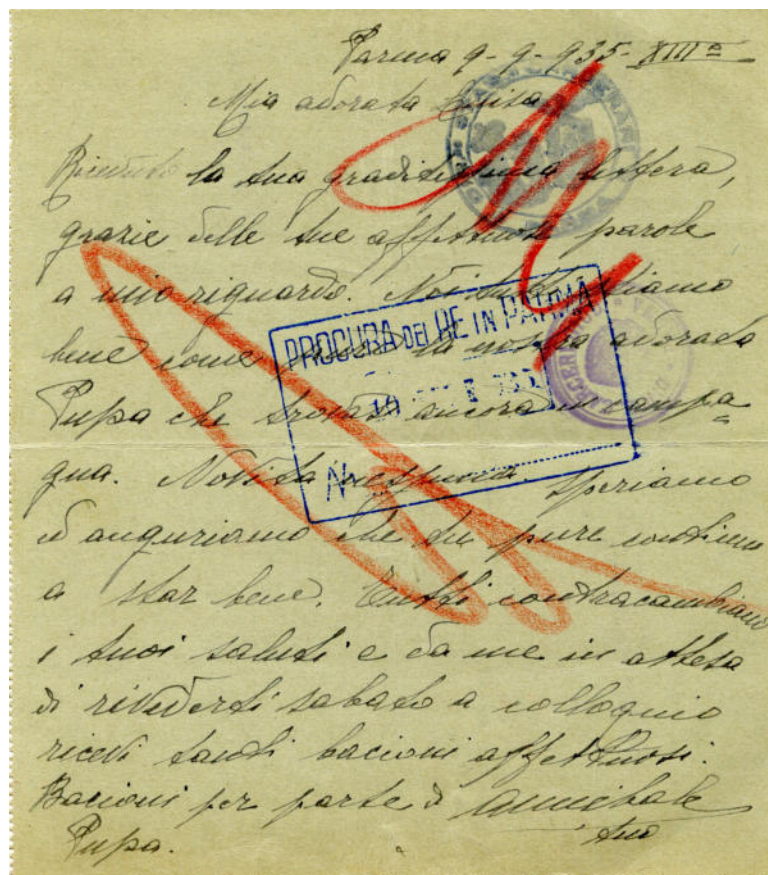 Parma 9-9-935-XIIIº
Mia adorata Luisa
Ricevuto la tua graditissima lettera,
grazie delle tue affettuose parole
a mio riguardo. Noi tutti stiamo
bene come la nostra adorata
Pupa che trovasi ancora in campa=
gna. Novità nessuna speriamo
ed auguriamo che tu pure continui
a star bene. Tutti contracambiano
i tuoi saluti e da me in attesa
di rivederti sabato a colloquio
ricevi tanti bacioni affettuosi.
Bacioni per parte di Annibale
Pupa. tuo
PROCURA DEL RE IN PARMA
10
N.